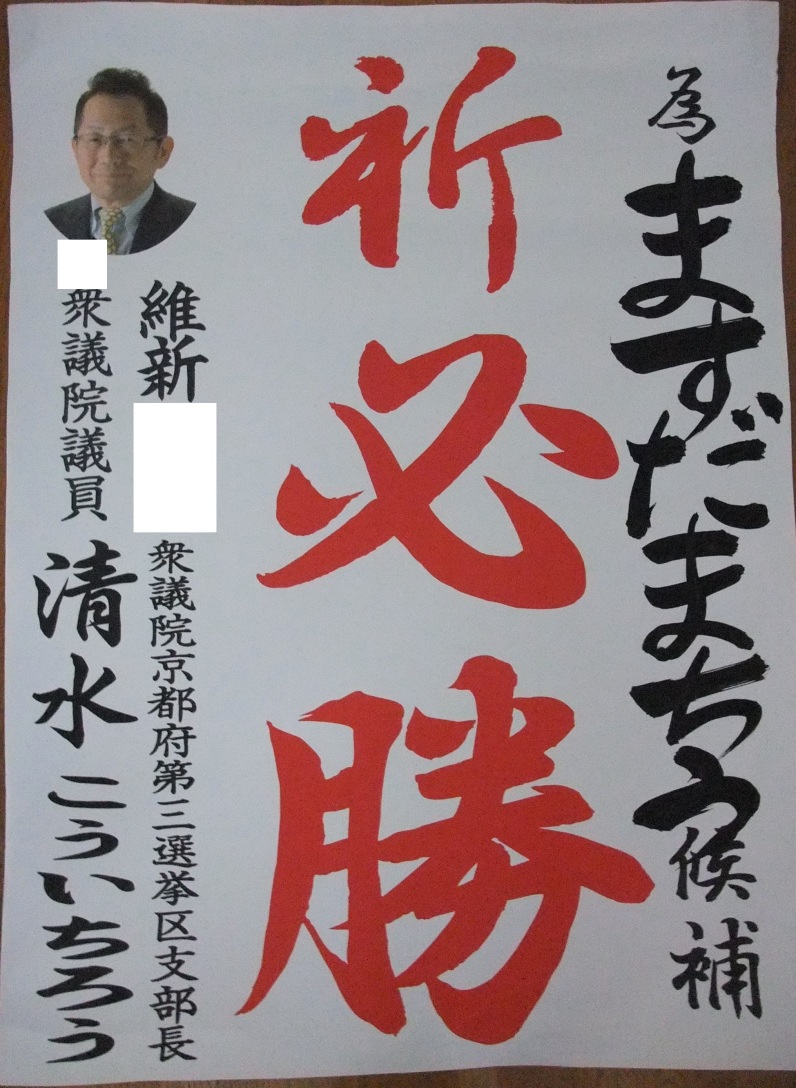 為 ますだまちこ候補
祈必勝
維新
衆議院京都府第三選挙区支部長
衆議院議員 清水 こういちろう